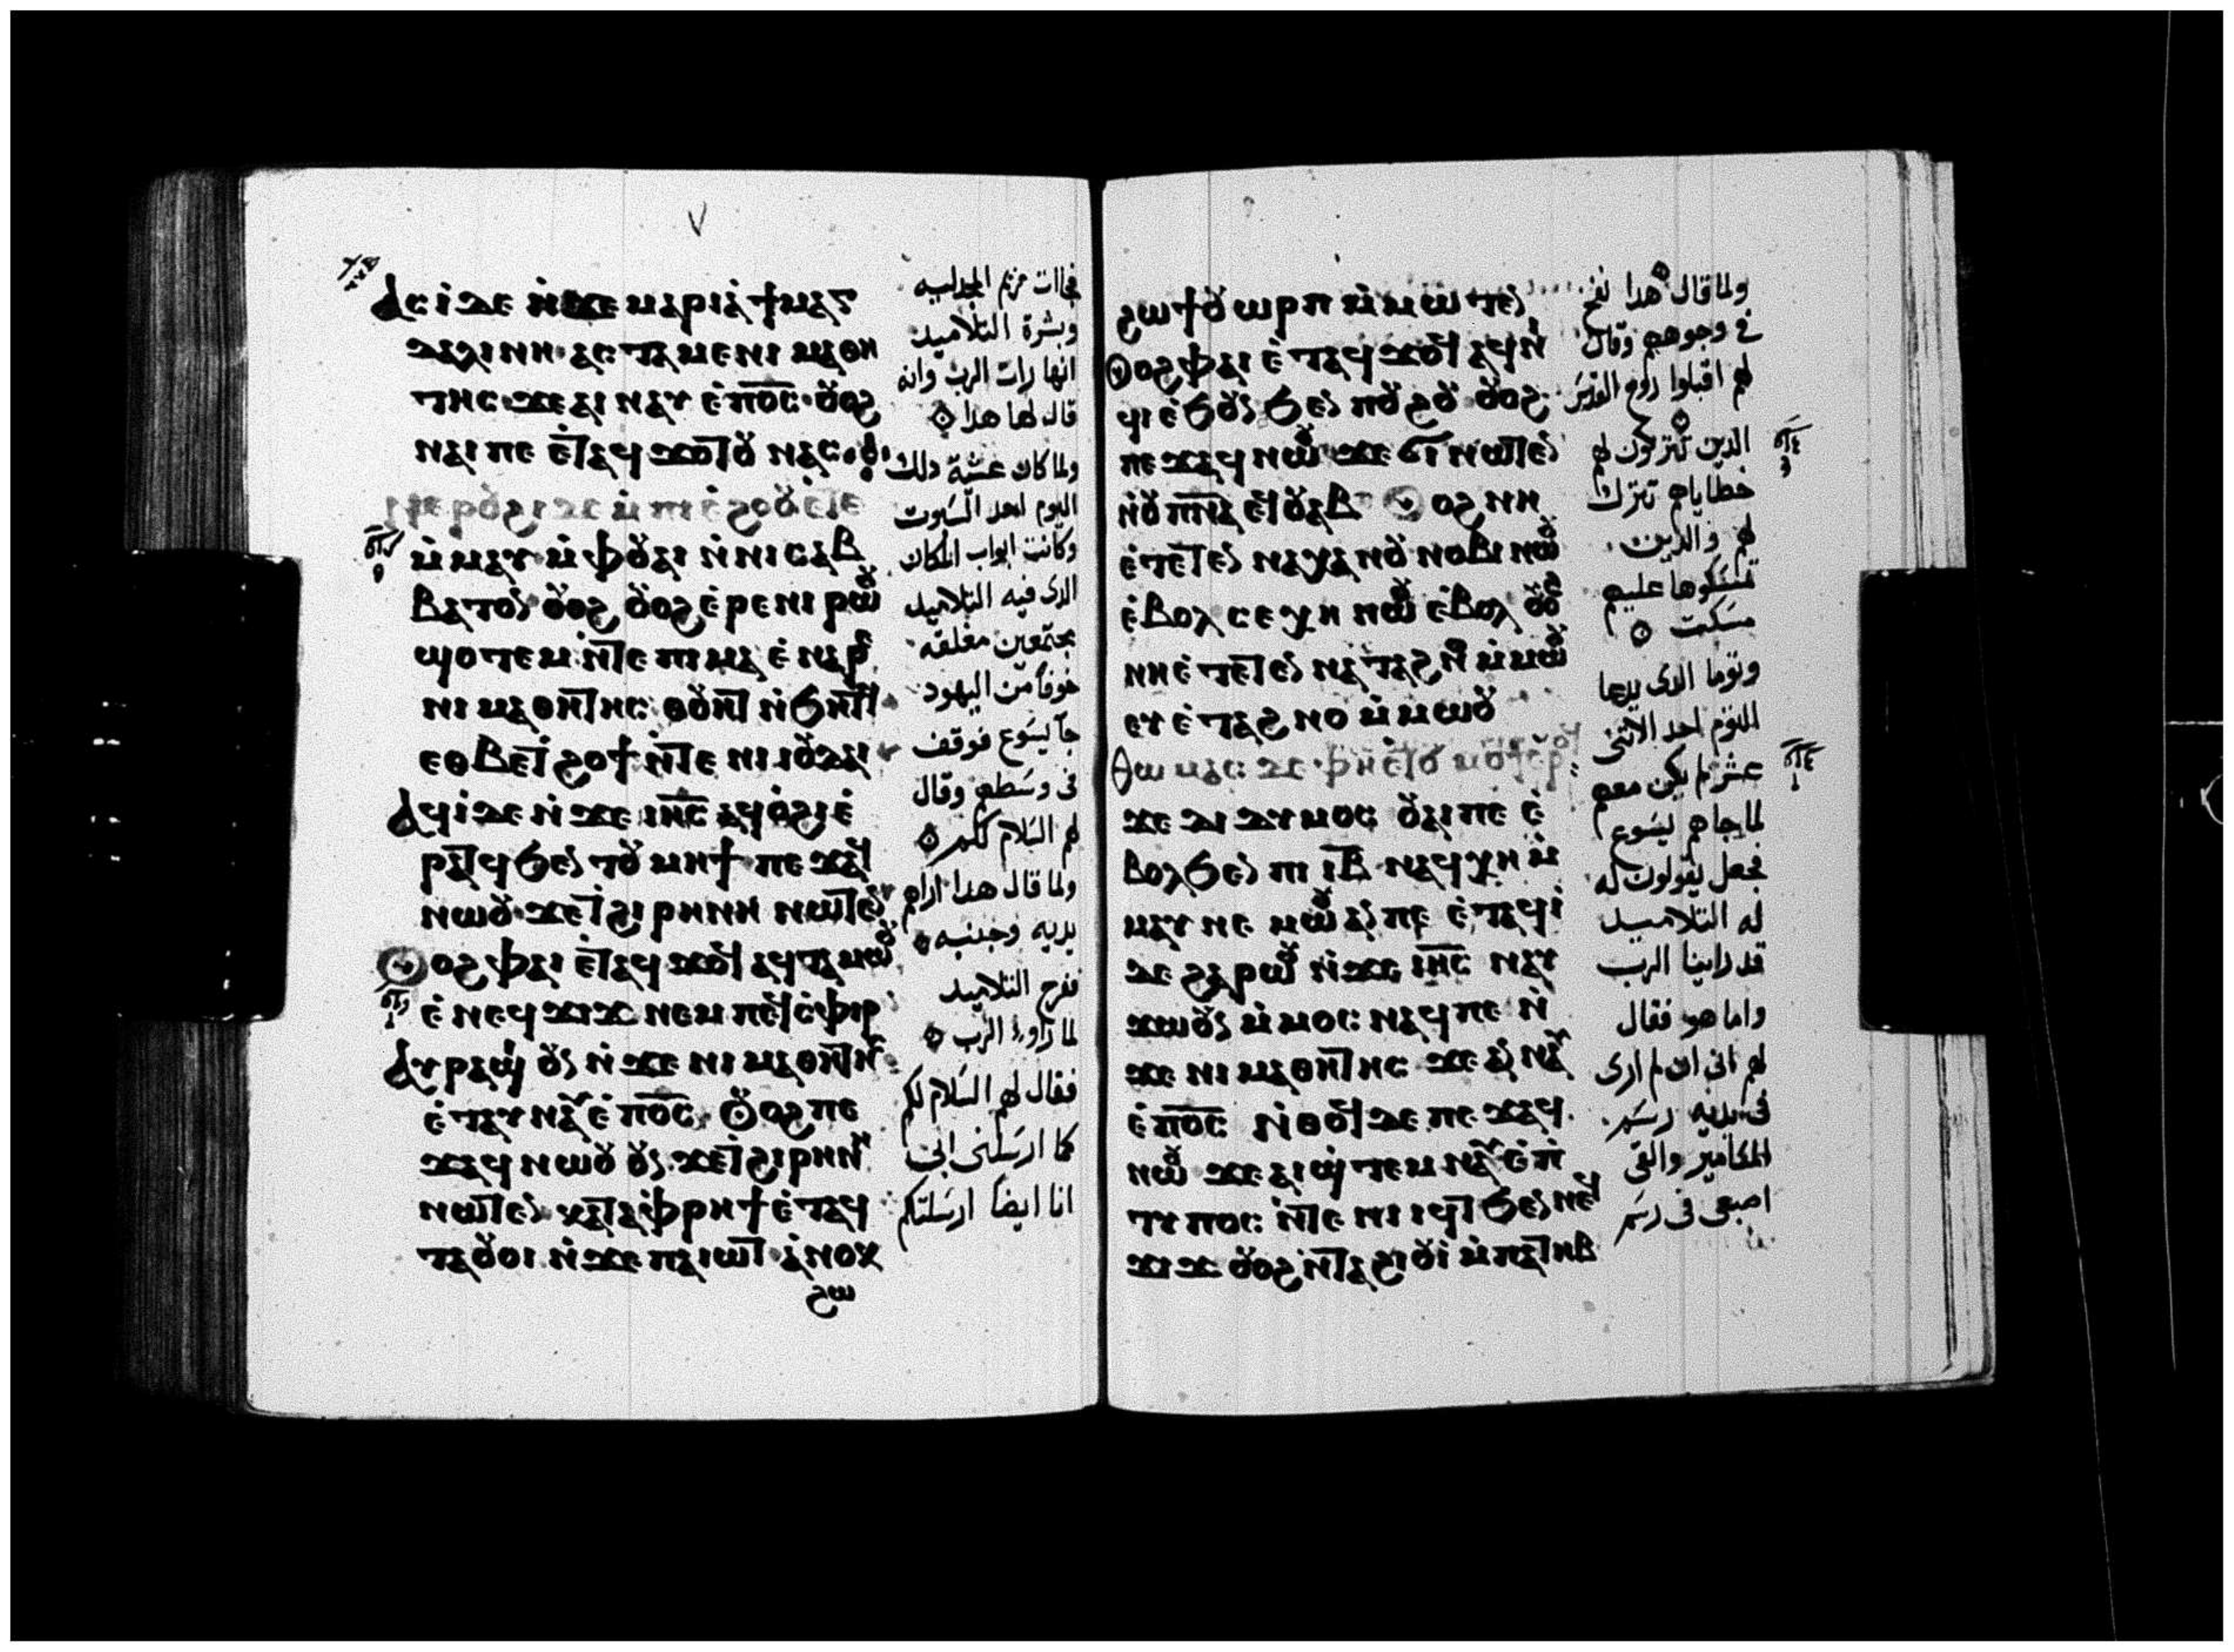 ⲁⲥⲓ̀ⲇⲉ ⲛ̀ϫⲉ ⲙⲁⲣⲓⲁ̀ ϯⲙⲁⲅ
ⲇⲁⲗⲓⲛⲏ ⲁⲥⲧⲁⲙⲉ ⲛⲓ ⲙⲁⲑⲏ
ⲧⲏⲥ ϫⲉ ⲁⲓ ⲛⲁⲩ ⲉ̀ⲡⲟ̅ⲥ̅ ⲟⲩⲟϩ
ⲛⲁⲓ ⲡⲉ ⲉ̀ⲧⲁϥ ϫⲟⲧⲟⲩ ⲛⲁⲥ
ⲣⲟⲩϩⲓ ⲇⲉ ⲙ̀ⲡⲓ ⲉ̀ϩⲟⲟⲩ ⲉ̀ⲧⲉ
ⲙ̀ⲙⲁⲩ ⲙ̀ⲫⲟⲩⲁⲓ ⲛ̀ⲛⲓⲥⲁⲃ
ⲃⲁⲧⲟⲛ ⲟⲩⲟϩ ⲟⲩⲟϩ ⲉ̀ⲣⲉ ⲛⲓ ⲣⲱⲟⲩ
ϣⲟⲧⲉⲙ ⲛ̀ⲧⲉ ⲡⲓⲙⲁ ⲉ̀ⲛⲁⲣⲉ
ⲛⲓ ⲙⲁⲑⲏⲧⲏⲥ ⲑⲟⲩⲏⲧ ⲛ̀ϧⲏⲧϥ
ⲉⲑⲃⲉ ⲧ̀ϩⲟϯ ⲛ̀ⲧⲉ ⲛⲓ ⲓⲟⲩⲇⲁⲓ
ⲁϥⲓ̀ⲇⲉ ⲛ̀ϫⲉ ⲓⲏ̅ⲥ̅ ⲁϥⲟ̀ϩⲓ ⲉ̀
ⲣⲁⲧϥ ϧⲉⲛ ⲧⲟⲩ ⲙⲏϯ ⲡⲉϫⲁϥ
ⲛⲱⲟⲩ ϫⲉ ⲧ̀ϩⲓⲣⲏⲛⲏ ⲛⲱⲧⲉⲛ
ⲟⲩⲟϩ ⲫⲁⲓ ⲉ̀ⲧⲁϥ ϫⲟϥ ⲁϥⲧⲁⲙⲱⲟⲩ
ⲉ̀ⲛⲉϥ ϫⲓϫ ⲛⲉⲙ ⲡⲉϥ ⲥ̀ⲫⲓⲣ
ⲁⲩⲣⲁϣⲓ ⲟⲩⲛ ⲛ̀ϫⲉ ⲛⲓ ⲙⲁⲑⲏⲧⲏⲥ
ⲉ̀ⲧⲁⲩ ⲛⲁⲩ ⲉ̀ⲡⲟ̅ⲥ̅ ⲟⲩⲟϩ ⲡⲉ
ϫⲁϥ ⲛⲱⲟⲩ ⲟⲩⲛ ϫⲉ ⲧ̀ϩⲓⲣⲏⲛⲏ
ⲛⲱⲧⲉⲛ ⲕⲁⲧⲁ ⲫ̀ⲣⲏϯ ⲉ̀ⲧⲁϥ
ⲧⲁⲟⲩⲟⲓ ⲛ̀ϫⲉ ⲡⲁⲓⲱⲧ ⲁ̀ⲛⲟⲕ
ϩⲱ
فجاات مريم المجدليه
وبشرة التلاميد
انها رات الرب وانه
قال لها هدا
ولما كان عشية دلك
اليوم احد السبوت
وكانت ابواب المكان
الدى فيه التلاميد
مجتمعين مغلقه
خوفا من اليهود
جا يسوع فوقف
فى وسطهم وقال
لهم السلام لكم
ولما قال هدا اراهم
يديه وجنبه
ففرح التلاميد
لما راوا الرب
فقال لهم السلام لكم
كما ارسلنى ابى
انا ايضا ارسلتكم
ϩⲱ ϯⲟⲩⲱⲣⲡ ⲙ̀ⲙⲱⲧⲉⲛ
ⲟⲩⲟϩ ⲫⲁⲓ ⲉ̀ⲧⲁϥ ϫⲟϥ ⲁϥⲛ̀
ϥⲓ ⲉ̀ϧⲟⲩⲛ ϧⲉⲛ ⲡⲟⲩϩⲟ ⲟⲩⲟϩ
ⲡⲉϫⲁϥ ⲛⲱⲟⲩ ϫⲉ ϭⲓ ⲛⲱⲧⲉⲛ
ⲛ̀ⲟⲩⲡ̅ⲛ̅ⲁ̅ ⲉϥⲟⲩⲁⲃ ⲟⲩⲟϩ ⲛⲏ
ⲉ̀ⲧⲉⲧⲉⲛ ⲛⲁⲭⲁ ⲛⲟⲩ ⲛⲟⲃⲓ ⲛⲱⲟⲩ
ⲉ̀ⲃⲟⲗ ⲥⲉⲭⲏ ⲛⲱⲟⲩ ⲉ̀ⲃⲟⲗ ⲟⲩⲟϩ
ⲛⲏ ⲉ̀ⲧⲉⲧⲉⲛ ⲛⲁⲧⲁϩⲛⲟ ⲙ̀ⲙⲱⲟⲩ
ⲉⲩⲉ̀ⲧⲁϩⲛⲟ ⲙ̀ⲙⲱⲟⲩ
ⲑⲱⲙⲁⲥ ⲇⲉ ⲫⲏⲉ̀ⲧⲟⲩ ⲙⲟⲩϯ ⲉ̀ⲣⲟϥ
ϫⲉ ⲇⲓⲇⲩⲙⲟⲥ ⲟⲩⲁⲓ ⲡⲉ ⲉ̀
ⲃⲟⲗ ϧⲉⲛ ⲡⲓ ⲓ̅ⲃ̅ ⲛⲁϥⲭⲏ ⲙ̀
ⲙⲁⲩ ⲛⲉⲙⲱⲟⲩ ⲁⲛ ⲡⲉ ⲉ̀ⲧⲁϥⲓ̀
ⲇⲉ ϩⲁⲣⲱⲟⲩ ⲛ̀ϫⲉ ⲓⲏ̅ⲥ̅ ⲛⲁⲩ
ϫⲱⲟⲩⲛ ⲙ̀ⲙⲟⲥ ⲛⲁϥ ⲡⲉ ⲛ̀
ϫⲉ ⲛⲓ ⲙⲁⲑⲏⲧⲏⲥ ϫⲉ ⲁⲛ ⲛⲁⲩ
ⲉ̀ⲡⲟ̅ⲥ̅ ⲛ̀ⲑⲟϥ ⲇⲉ ⲡⲉϫⲁϥ
ⲛⲱⲟⲩ ϫⲉ ⲁⲓϣ̀ⲧⲉⲙ ⲛⲁⲩ ⲉ̀ⲡ̀
ⲧⲩⲡⲟⲥ ⲛ̀ⲧⲉ ⲛⲓ ⲓϥⲧ ϧⲉⲛ ⲛⲉϥ
ϫⲓϫ ⲟⲩⲟϩ ⲛ̀ⲧⲁϩⲓⲟⲩⲓ̀ ⲙ̀ⲡⲁⲧⲏⲃ
ولما قال هدا نفخ
فى وجوههم وقال
لهم اقبلوا روح القدس
الدين تتركون لهم
خطاياهم تترك
لهم والدين
تمسكوها عليهم
مسكت
وتوما الدى يدعا
التوم احد الاثنى
عشر لم يكن معهم
لما جاهم يسوع
فجعل يقولون له
له التلاميد
قد راينا الرب
واما هو فقال
لهم انى ان لم ارى
فى يديه رسم
المسامير والقى
اصبعى فى رسم